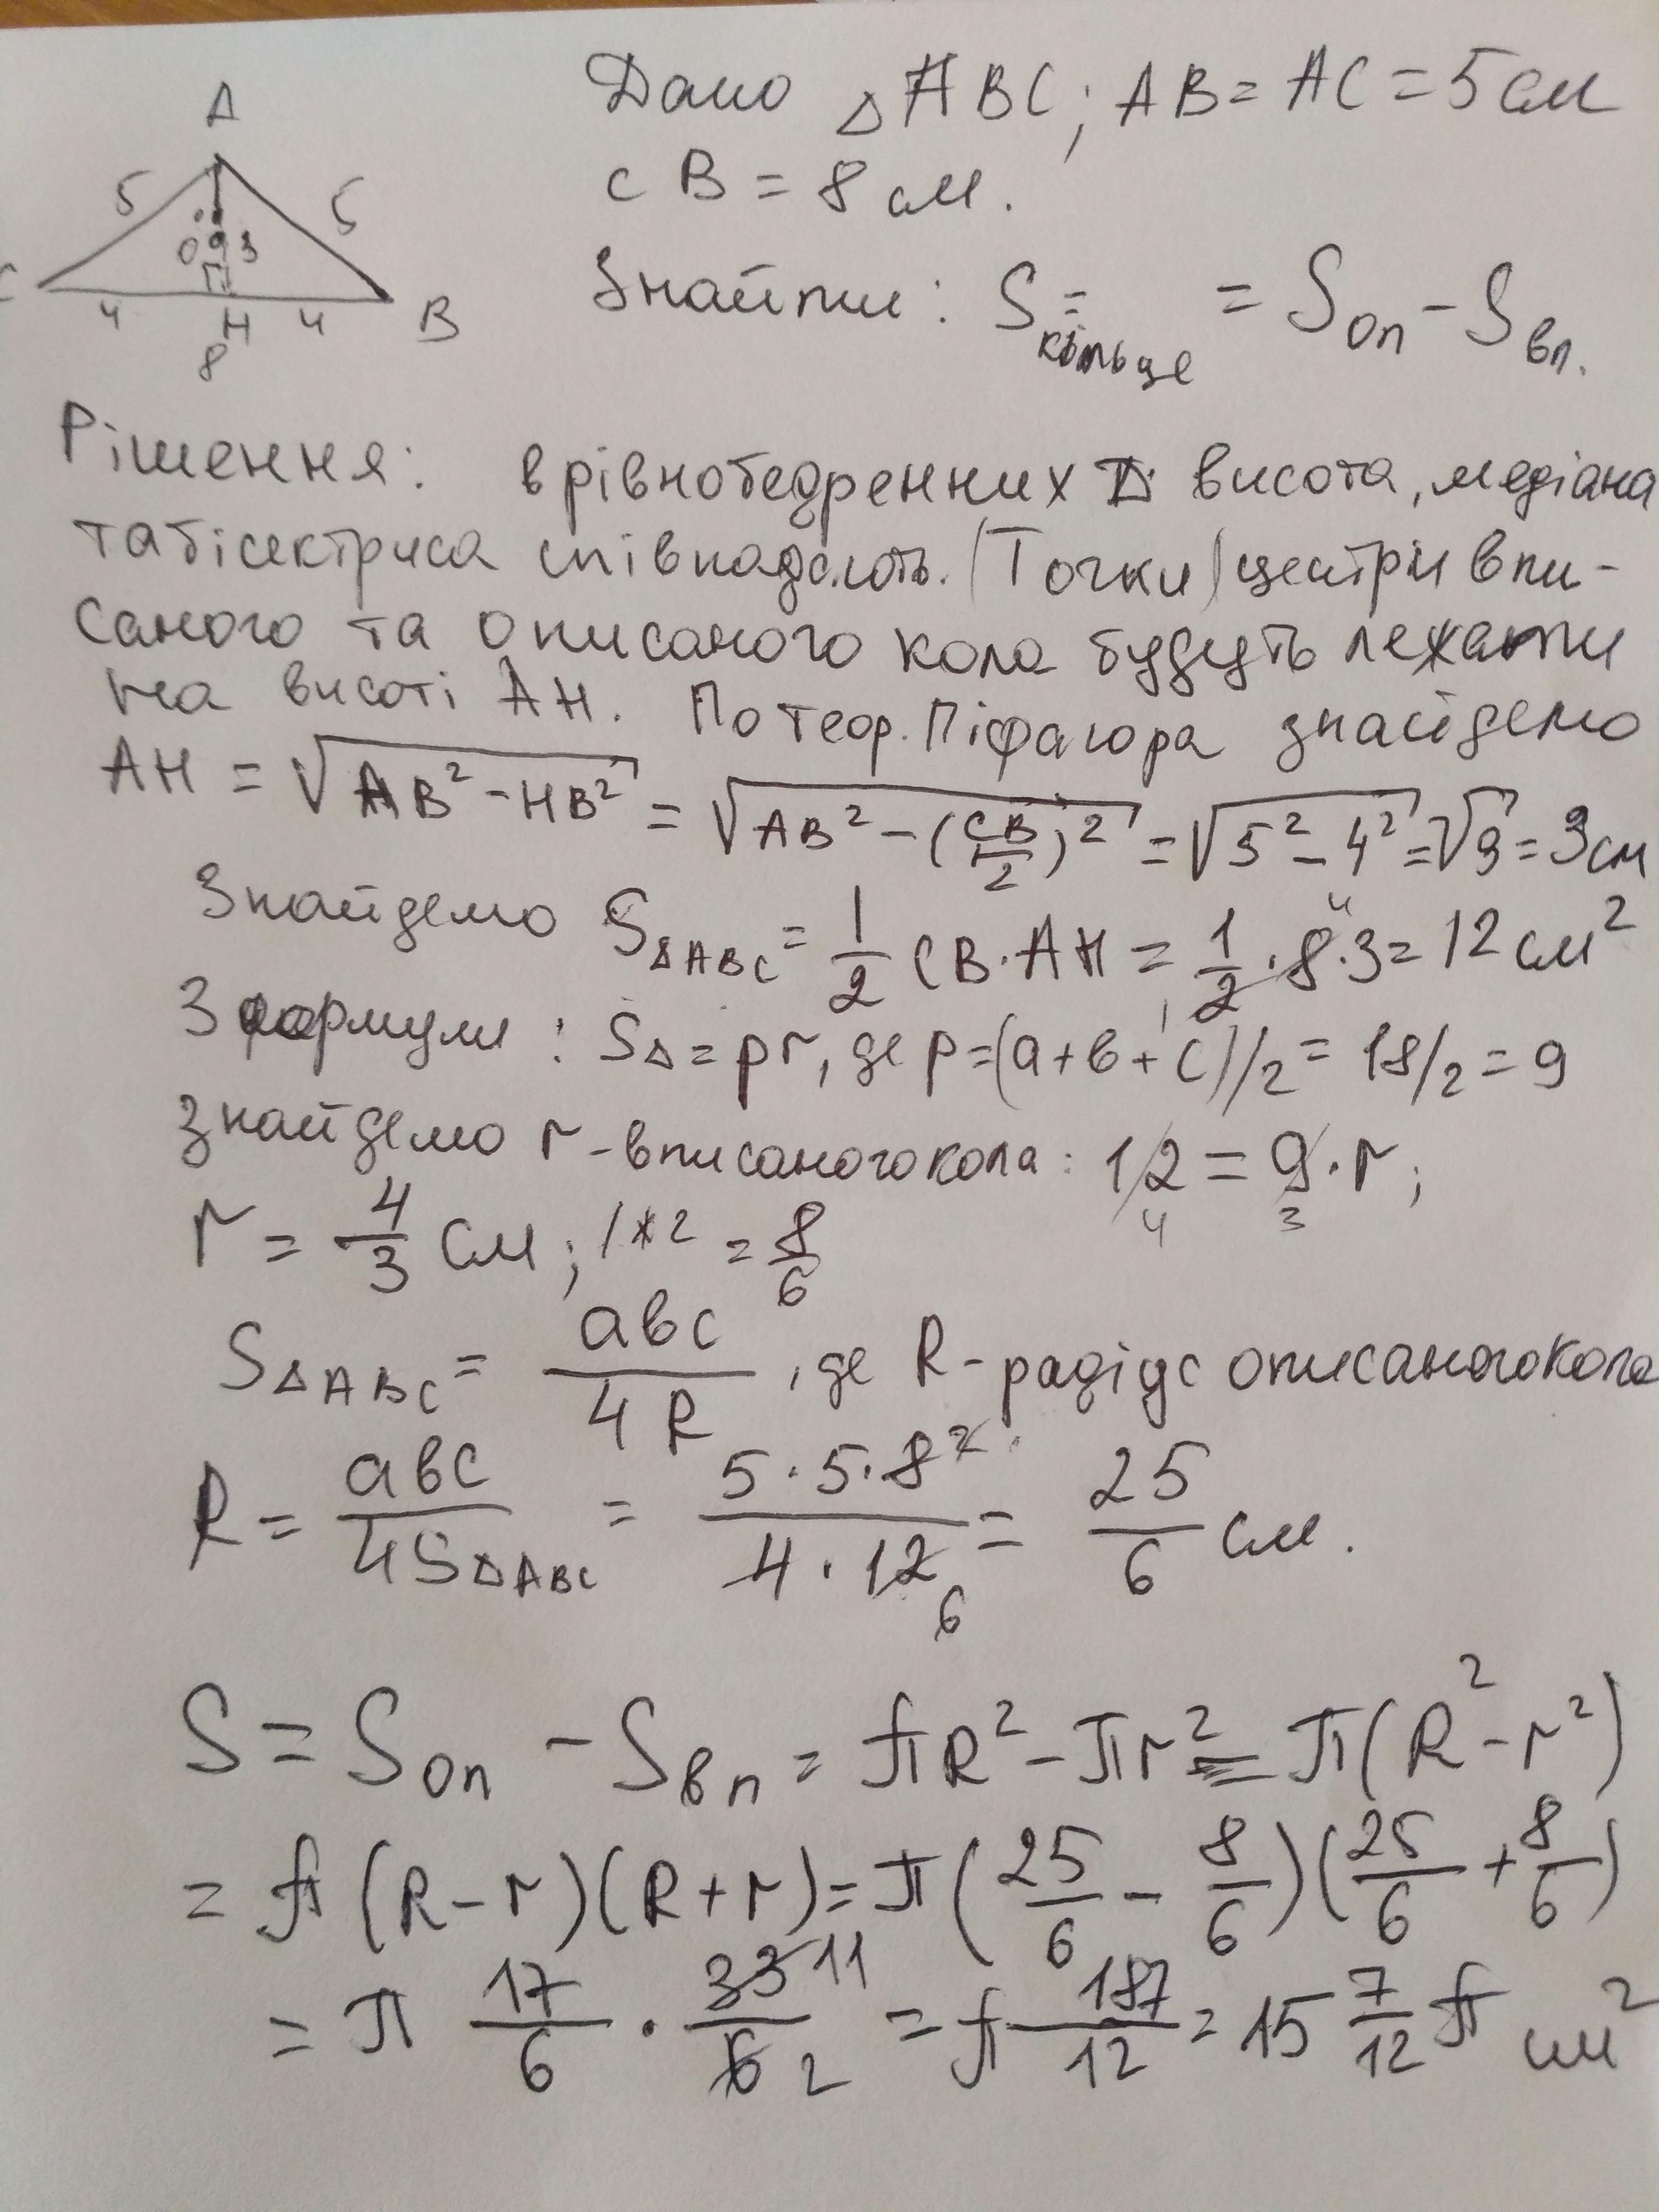 Дано △ABC; AB = AC = 5 см
CB = 8 см.
Знайти: S кільце = Sоп − Sвп.
A
5 5
O 3
C 4 H 4 B
8
Рішення: в рівнобедренних △ висота, медіана
та бісектриса співпадають. (Точки) центри впи-
саного та описаного кола будуть лежати
на висоті AH. По теор. Піфагора знайдемо
AH = √(AB² − HB²) = √(AB² − (CB/2)²) = √(5² − 4²) = √9 = 3 см
Знайдемо S△ABC = 1/2 CB · AH = 1/2 · 8 · 3 = 12 см²
З формули: S△ = pr, де p = (a + b + c)/2 = 18/2 = 9
знайдемо r - вписаного кола: 12 = 9 · r;
r = 4/3 см; /*2 = 8/6
S△ABC = abc/4R, де R - радіус описаного кола
R = abc/4S△ABC = 5·5·8/4·12 = 25/6 см.
S = Sоп − Sвп = πR² − πr² = π(R² − r²)
= π(R − r)(R + r) = π(25/6 − 8/6)(25/6 + 8/6)
= π 17/6 · 33/6 = π 187/12 = 15 7/12 π см²